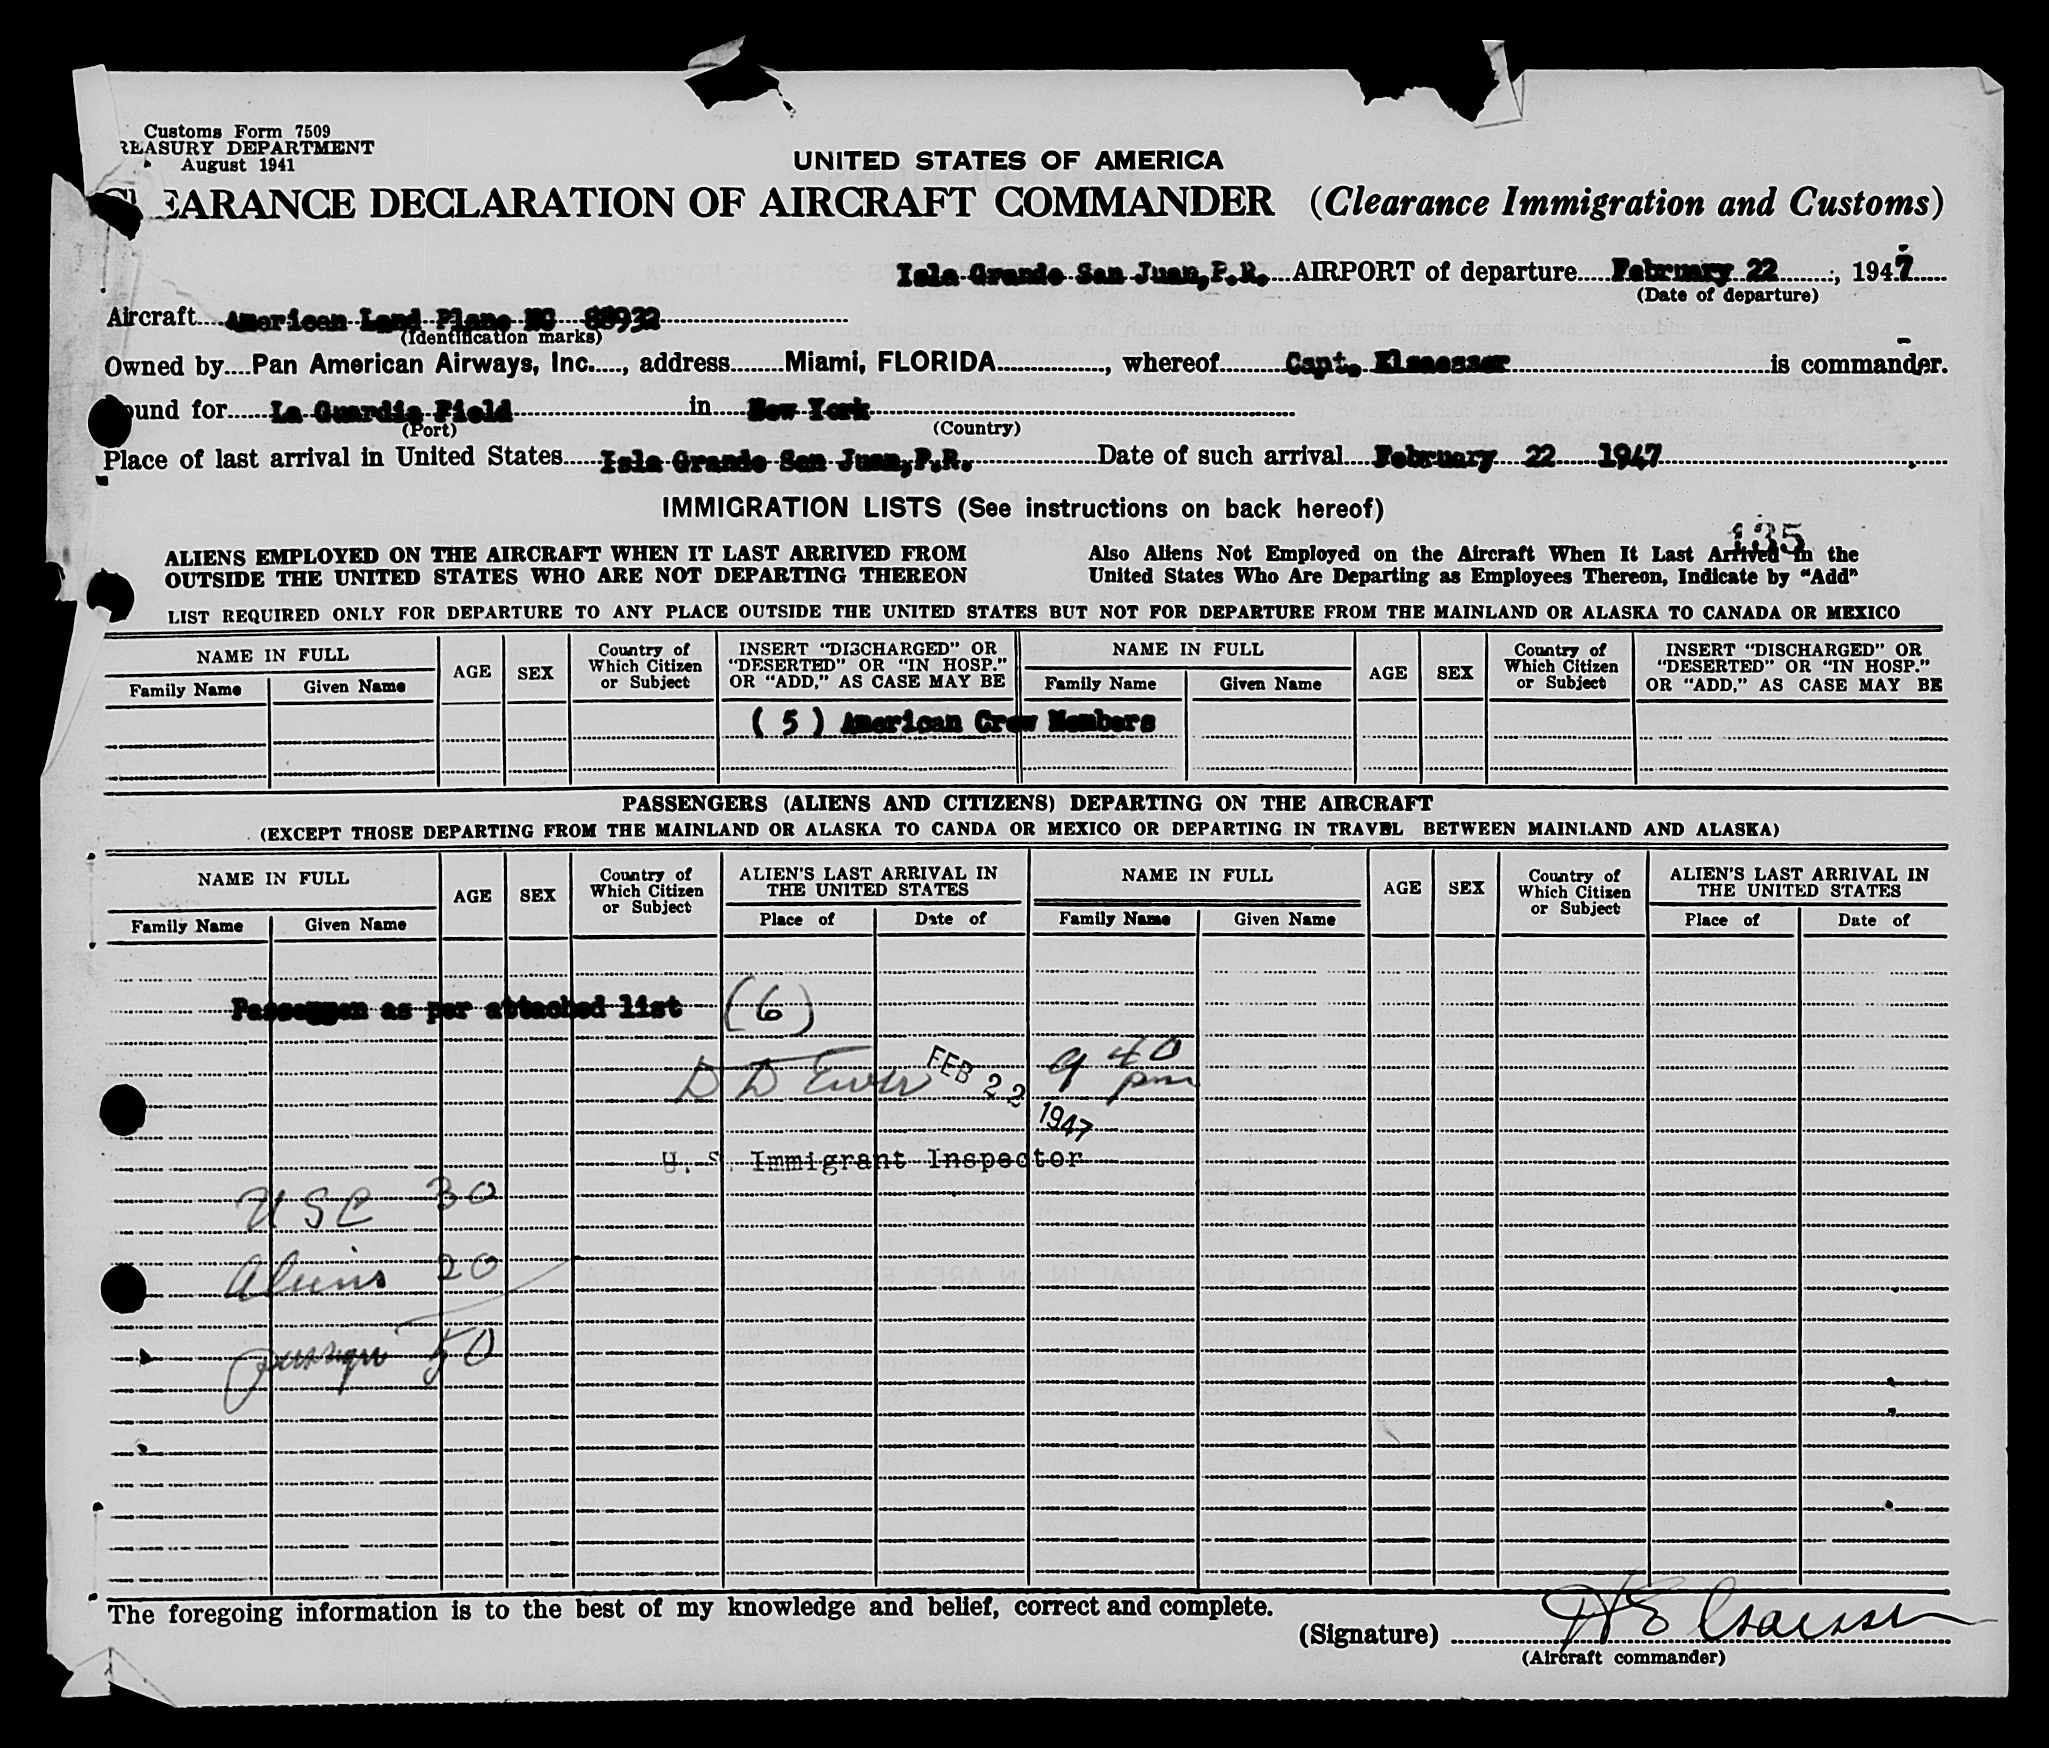 Customs Form 7509
REASURY DEPARTMENT
August 1941
UNITED STATES OF AMERICA
CLEARANCE DECLARATION OF AIRCRAFT COMMANDER (Clearance Immigration and Customs)
Isla Grande San Juan, P.R. AIRPORT of departure February 22, 1947
(Date of departure)
Aircraft American Land Plane NC 88932
(Identification marks)
Owned by Pan American Airways, Inc., address Miami, FLORIDA, whereof Capt. Elsaesser is commander.
ound for La Guardia Field in New York
(Port) (Country)
Place of last arrival in United States Isla Grande San Juan, P.R. Date of such arrival February 22 1947
IMMIGRATION LISTS (See instructions on back hereof)
135
ALIENS EMPLOYED ON THE AIRCRAFT WHEN IT LAST ARRIVED FROM
OUTSIDE THE UNITED STATES WHO ARE NOT DEPARTING THEREON
Also Aliens Not Employed on the Aircraft When It Last Arrived in the
United States Who Are Departing as Employees Thereon, Indicate by "Add"
LIST REQUIRED ONLY FOR DEPARTURE TO ANY PLACE OUTSIDE THE UNITED STATES BUT NOT FOR DEPARTURE FROM THE MAINLAND OR ALASKA TO CANADA OR MEXICO
NAME IN FULL
Family Name Given Name
AGE
SEX
Country of
Which Citizen
or Subject
INSERT "DISCHARGED" OR
"DESERTED" OR "IN HOSP."
OR "ADD," AS CASE MAY BE
NAME IN FULL
Family Name Given Name
AGE
SEX
Country of
Which Citizen
or Subject
INSERT "DISCHARGED" OR
"DESERTED" OR "IN HOSP."
OR "ADD," AS CASE MAY BE
( 5 ) American Crew Members
PASSENGERS (ALIENS AND CITIZENS) DEPARTING ON THE AIRCRAFT
(EXCEPT THOSE DEPARTING FROM THE MAINLAND OR ALASKA TO CANDA OR MEXICO OR DEPARTING IN TRAVEL BETWEEN MAINLAND AND ALASKA)
NAME IN FULL
Family Name Given Name
AGE
SEX
Country of
Which Citizen
or Subject
ALIEN'S LAST ARRIVAL IN
THE UNITED STATES
Place of Date of
NAME IN FULL
Family Name Given Name
AGE
SEX
Country of
Which Citizen
or Subject
ALIEN'S LAST ARRIVAL IN
THE UNITED STATES
Place of Date of
as per attached list (6)
D D FEB 22 1947 9 40 pm
U. S. Immigrant Inspector
USC 30
Aliens 20
50
The foregoing information is to the best of my knowledge and belief, correct and complete.
(Signature) H Elsaesser
(Aircraft commander)